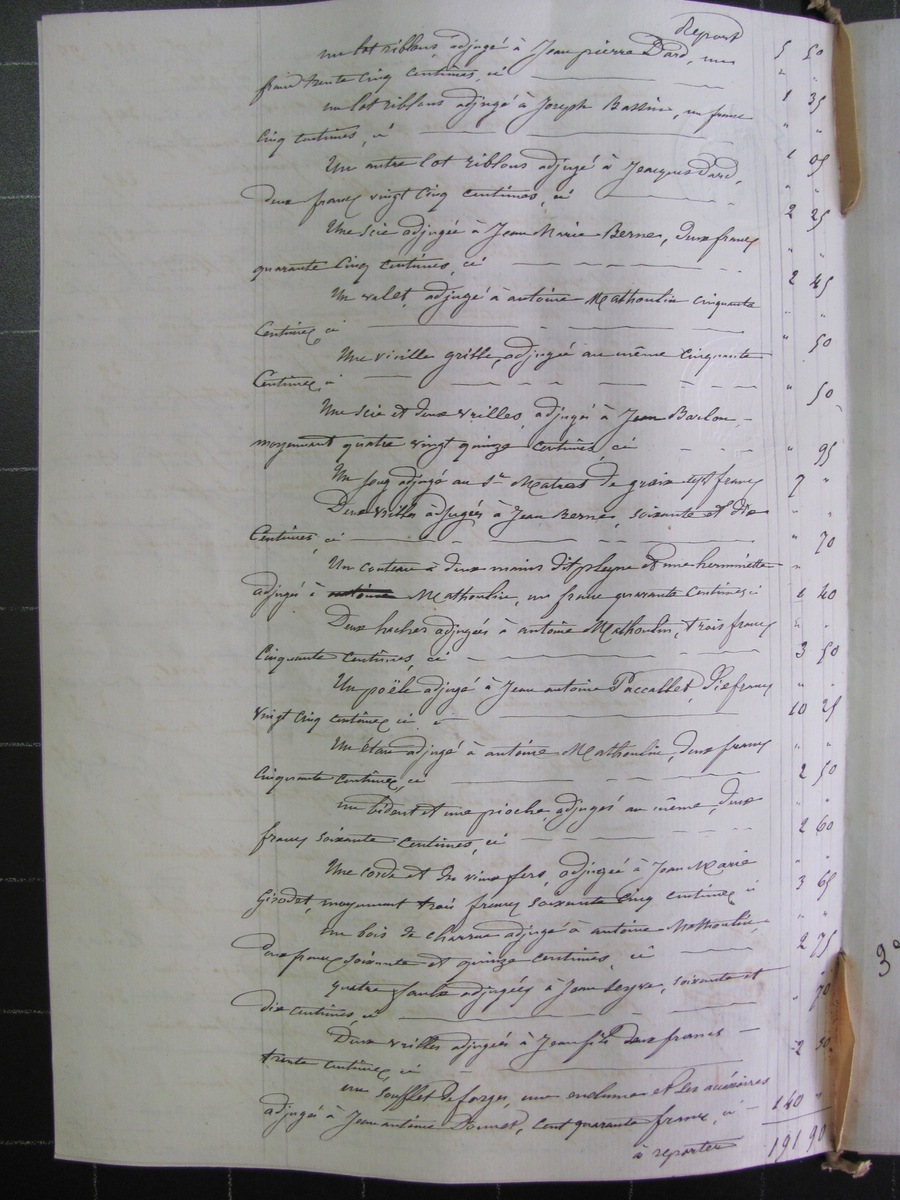 Report 5 50
un lot riblons, adjugé à Jean pierre Dard, un
franc trente cinq centimes, ci 1 35
un lot riblons adjugé à Joseph Bassin, un franc
cinq centimes, ci 1 05
Un autre lot riblons adjugé à Jacques Dard,
deux francs vingt cinq centimes, ci 2 25
Une scie adjugée à Jean Marie Berne, deux francs
quarante cinq centimes, ci 2 45
Un valet, adjugé à antoine Mathoulin cinquante
Centimes, ci " 50
Une vieille grille, adjugée au même cinquante
Centimes, ci " 50
Une scie et deux vrilles, adjugé à Jean Barlon,
moyennant quatre vingt quinze centimes, ci " 95
Un joug adjugé au Sr Matras de groix sept francs 7 "
Deux vrilles adjugées à Jean Berne, soixante et dix
Centimes, ci " 70
Un couteau à deux mains dit pleyne et une herminette
adjugé à antoine Mathoulin, un franc quarante centimes ci 1 40
Deux haches adjugées à antoine Mathoulin, trois francs
Cinquante centimes, ci 3 50
Un poële adjugé à Jean antoine Paccallet, Dix francs
vingt cinq centimes ci 10 25
Un étau adjugé à antoine Mathoulin, deux francs
Cinquante centimes, ci 2 50
un bident et une pioche, adjugés au même, deux
francs soixante centimes, ci 2 60
Une corde et du vieux fers, adjugée à Jean Marie
Girodet, moyennant trois francs soixante cinq centimes ci 3 65
un bois de charrue adjugé à antoine Mathoulin,
Deux francs soixante et quinze centimes, ci 2 75
quatre faulx adjugées à Jean Seyve, soixante et
dix centimes, ci " 70
Deux vrilles adjugées à Jean fils deux francs
trente centimes, ci 2 30
un soufflet de forges, une enclume et les accésoires
adjugé à Jean antoine Donnet, Cent quarante francs, ci 140 "
à reporter 191 90
3°